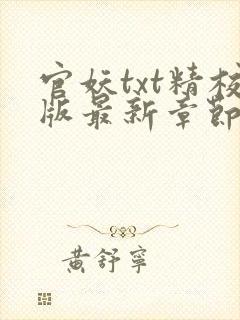 官妖txt精校
版最新章節
黃舒寧